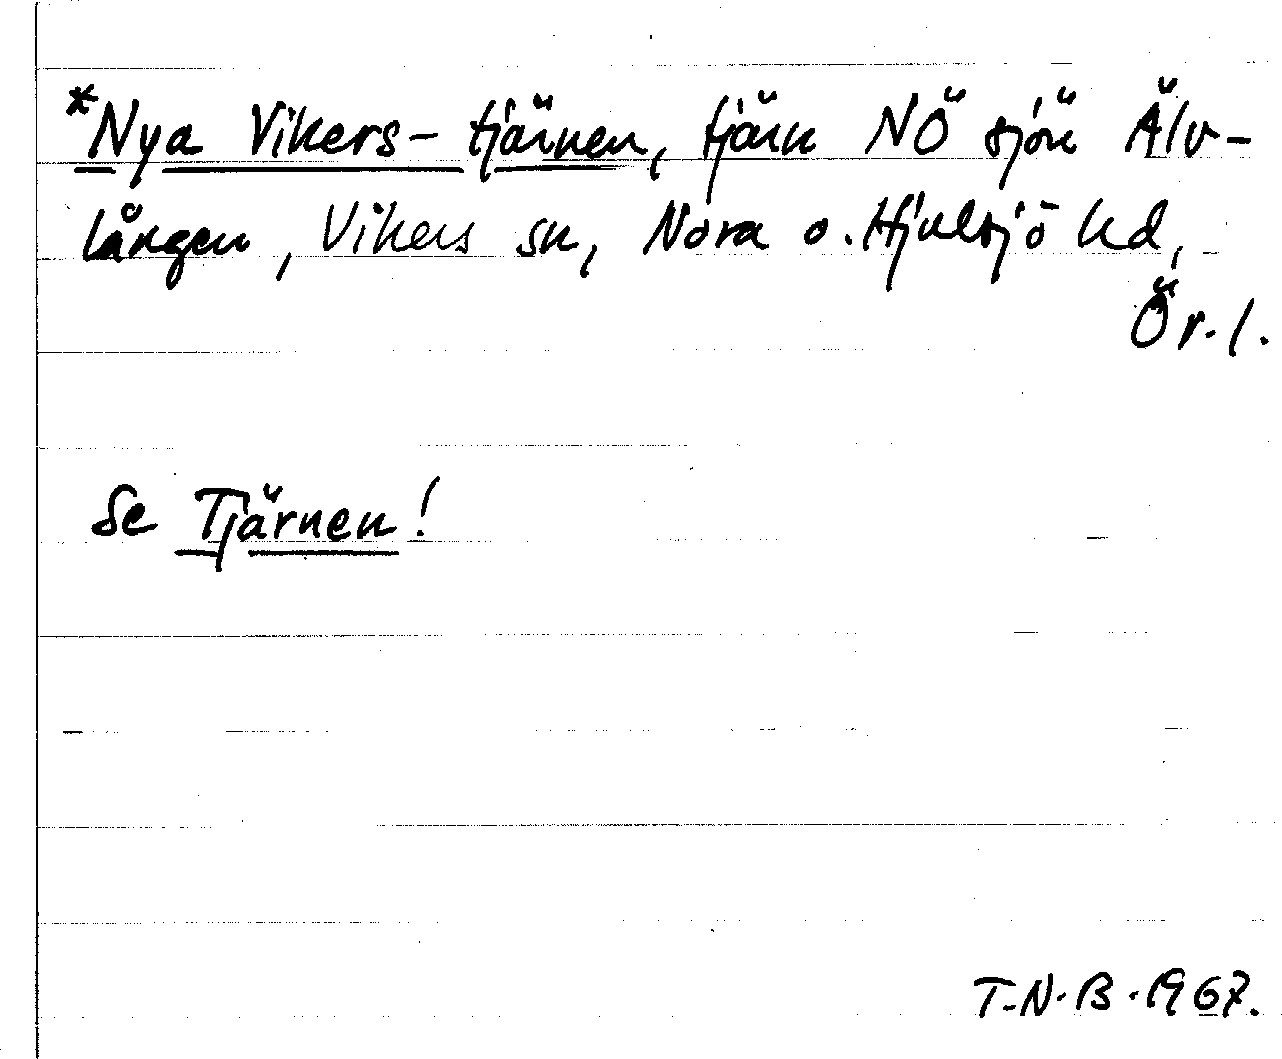 *Nya Vikers-tjärnen, tjärn NÖ sjön Älv-
lången, Vikers sn, Nora o. Hjulsjö hd,
Ör. l.
Se Tjärnen!
T.N.B. 1967.